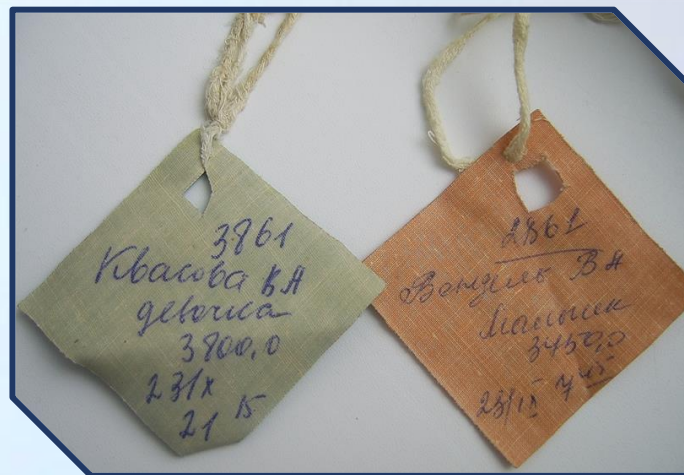 3861
Квасова В А
девочка
3800,0
23/X
21 15
2861
Вендель В А
Мальчик
3450,0
23/IX 7 45